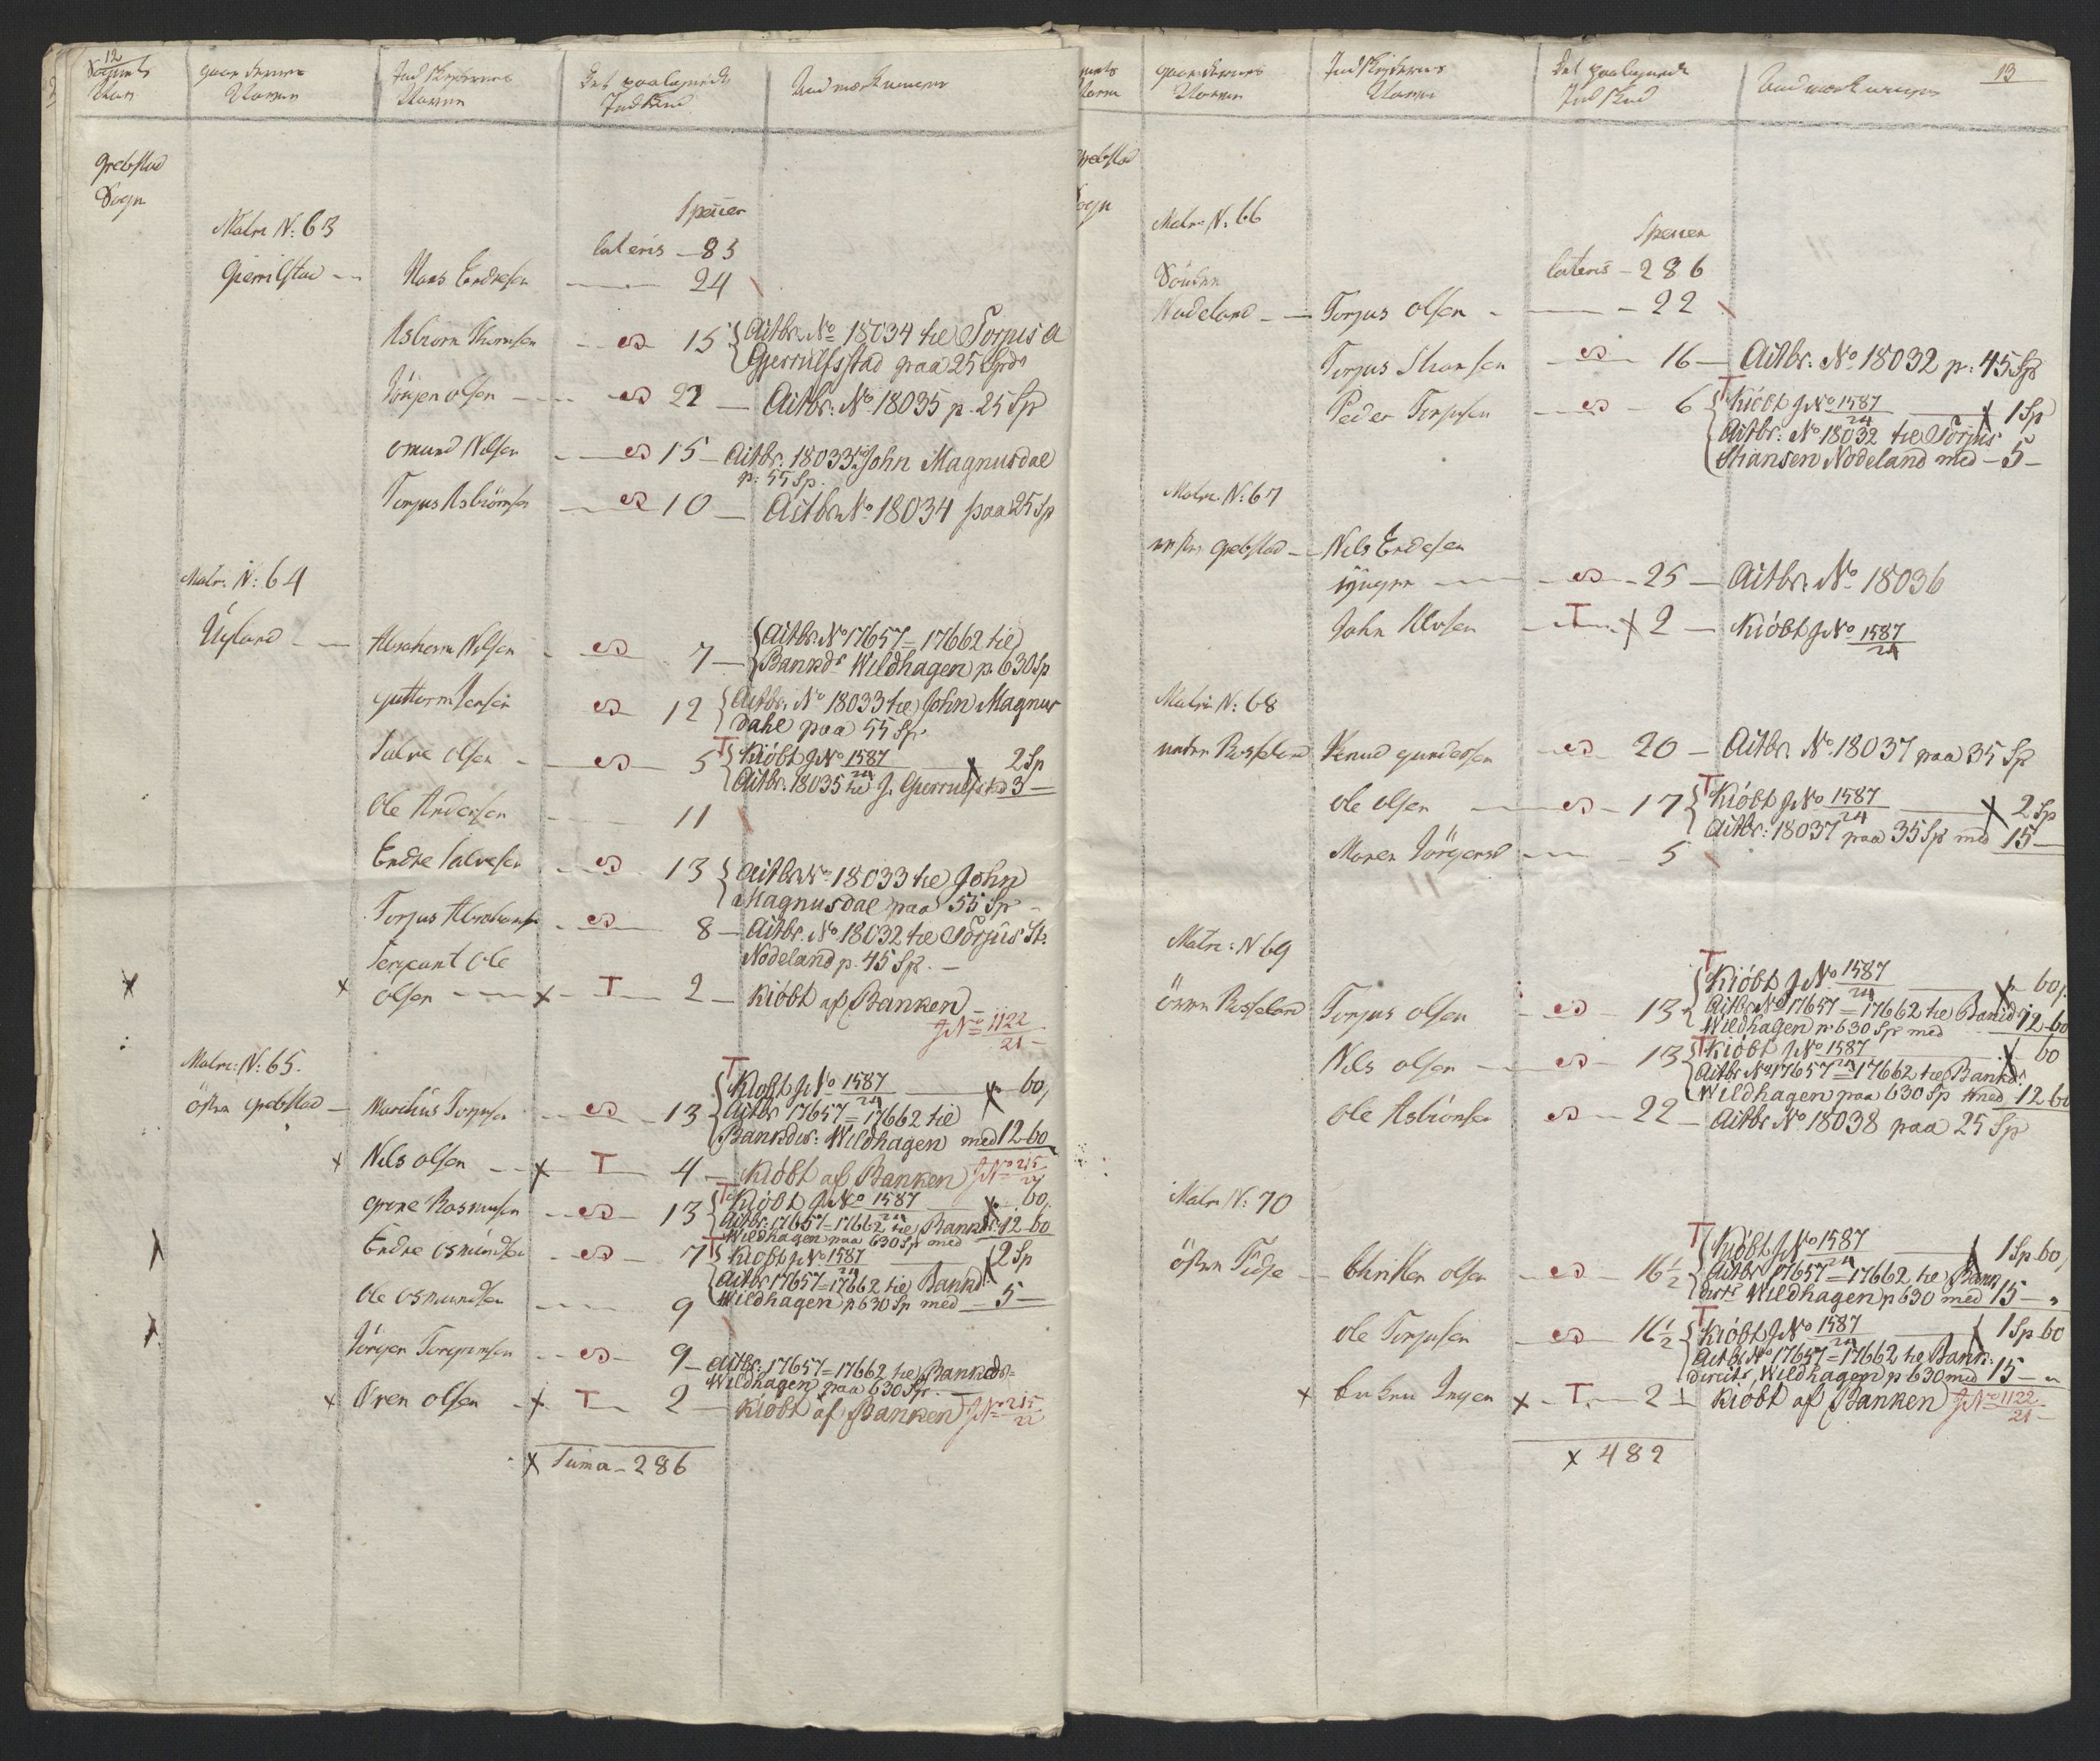 12
Sognets Navn
Gaardernes Navne
Indskydernes Navne
Det paalignede Indskud
Anmærkninger
Grebstad
Sogn
Matr. N: 63
Specier
lateris - 83
Gierrilstad - Hans Endresen - 24
Asbiorn Thomsen - 15 Actbr. No 18034 til Torjus A
Gjerrulfsstad paa 25 Spdr
Jörgen olsen - 22 - Actbr: No 18035 p. 25 Sp
omund Nilsen - 15 - Actbr. 18033. John Magnusdae
p: 55 Sp.
Torjus Asbiörnsen - 10 - Actbr. No 18034 paa 25 Sp
Matr. N: 64
Uyland - Abraham Nilsen - 7 - Actbr. No 17657 = 17662 til
Bankdr Wildhagen p. 630 Sp
guttorm Jensen 12 Actbr. No 18033 til John Magnus
dahl paa 55 Sp.
Salve olsen - 5 T Kiöbt J No 1587/24 - x 2 Sp
Actbr. 18035 til J. Gjerrulfstad 3 -
Ole Andersen - 11
Endre Salvesen - 13 Actbr. No 18033 til John
Magnusdae paa 55 Sp -
Torjus Abrahams - 8 - Actbr. No 18032 til Torjus St.
Nodeland p. 45 Sp. -
Sergeant Ole
x x olsen - x - T - 2 - Kiöbt af Banken -
J No 1122/21 -
Matr: N: 65.
östre grebstad - Marchus Torjusen - 13 T Kiöbt J No 1587/24 - x 60,
Actbr 17657 = 17662 til
Bankdir: Wildhagen med 12-60
x Nils olsen - x T 4 - Kiöbt af Banken J No 215/22
grone Rasmusen - 13 T Kiöbt J No 1587/24 x 60,
Actbr. 17657 = 17662 til Bankdr. 12-60
Wildhagen paa 630 Sp med
Endre osmundsen - 7 T Kiöbt J No 1587/24 - x 2 Sp
Actbr 17657 = 17662 til Bankd.
Wildhagen p 630 Sp med - 5 -
Ole osmundsen - 9
Jörgen Torgersen - 9 - Actbr: 17657 = 17662 til Bankdr
Wildhagen paa 630 Sp. -
x Ören olsen - x T - 2 - Kiöbt af Banken J No 215/22
x Suma - 286
13
Gaardernes Navne
Indskydernes Navne
Det paalignede Indskud
Anmærkninger
Matr. N: 66
Specier
lateris - 286
Söndre
Nodeland - Torjus olsen - 22
Torjus Stiansen - 16 - Actbr: No 18032 p: 45 Sp
Peder Torjusen - 6 T Kiöbt J No 1587/24 - x 1 Sp
Actbr: No 18032 til Torjus
Stiansen Nodeland med - 5 -
Matr. N: 67
vestre grebstad - Nils Endesen
yngre - 25 - Actbr. No 18036
John Alvsen - T - x 2 - Kiöbt J No 1587/24
Matr N: 68
nedre Rosseland Knud gundersen 20 - Actbr. No 18037 paa 35 Sp
ole olsen - 17 T Kiöbt J No 1587/24 - x 2 Sp
Actbr: 18037 paa 35 Sp med 15 -
Maren Jörgensd - 5
Matr: N 69
övre Rosseland Torjus olsen - 13 T Kiöbt J No. 1587/24 - x 60,
Actbr. No 17657 = 17662 til Bankdr
Wildhagen p. 630 Sp med - 12-60
Nils olsen - 13 T Kiöbt J No 1587/24 - x 60
Actbr No 17657 = 17662 til Bankdr.
Wildhagen paa 630 Sp med 12-60
Ole Asbiönsen 22 - Actbr No 18038 paa 25 Sp
Matr N: 70
östre Tidse - Christen olsen - 16 1/2 T Kiöbt J No 1587/24 - x 1 Sp 60,
Actbr 17657 = 17662 til Bank
dirtr Wildhagen p 630 med 15 -
ole Torjusen - 16 1/2 T Kiöbt J No 1587/24 - x 1 Sp 60
Actbr No 17657 = 17662 til Bank.
direct. Wildhagen p 630 med 15 -
x Enken Inger x - T. - 2 - Kiöbt af Banken J No 1122/21 -
x 482